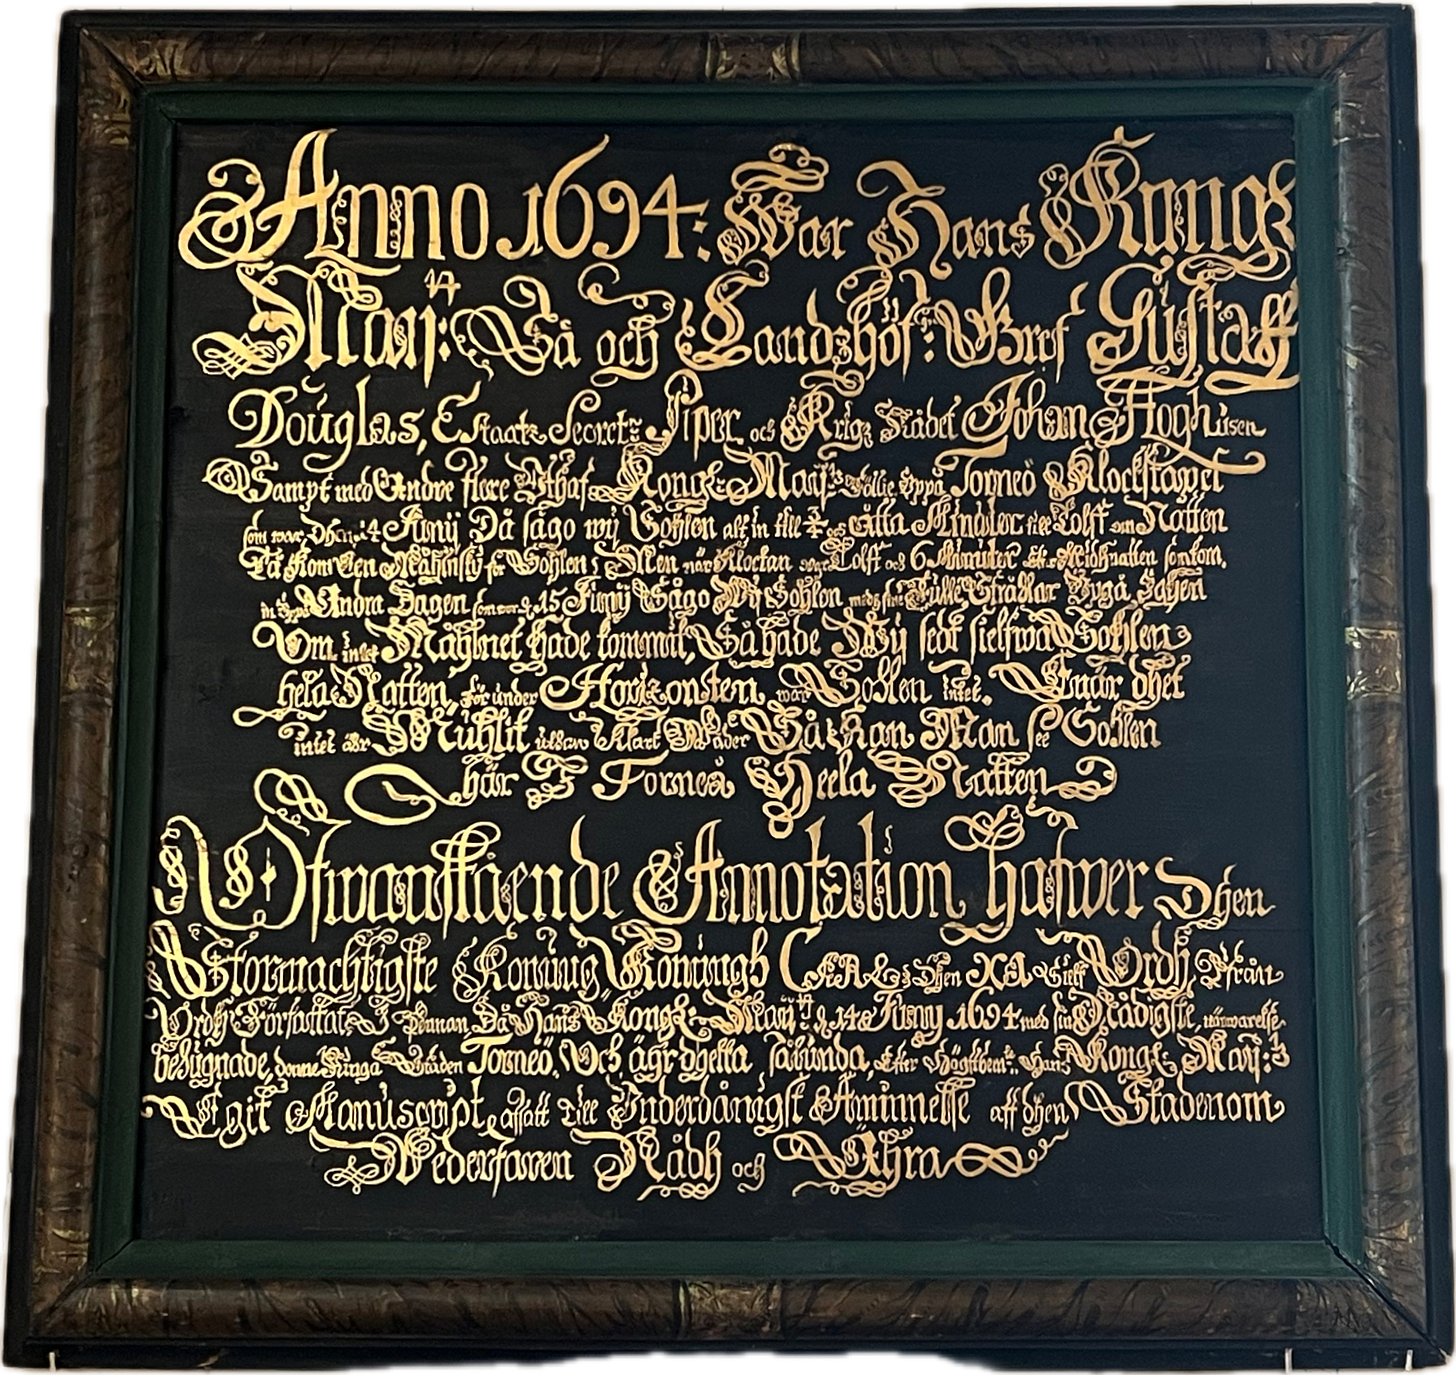 Anno 1694: War Hans Kongz
Maij:tz Så och Landzhöf: Gref Gustaff
Douglas, Estaatz Secret: Piper och Krigz Rådet Johan Hoghusen
Sampt med Andre flere Uthaf Kongl: Maij:tz Följie Uppå Torneö Klockstapel
som war dhen 14 Junij Då sågo wij Sohlen alt in till och otta Minuter till Tolff om Natten
Då Kom En Måhnsky för Sohlen Men när Klockan war Tolff och 6 Minuter efter Midnatten som kom
in Uppå Andra Dagen som war d. 15 Junij Sågo Wij Sohlen medh sine Fulle Strålar Igen
Om intet Måhlnet hade kommit, Så hade Wij sedt sielfwa Sohlen
hela Natten, för under Horizonten war Sohlen intet. Enär dhet
intet ähr Muhlit uthan Klart Wäder Så Kan Man see Sohlen
här I Torneå Heela Natten
Ofwanståjende Annotation hafwer Dhen
Stormachtigste Konung Konungh CARL Dhen XI Sielf Ordh Ifrån
Ordh Författat I pennan Då Hans Kongl: Maij:tt d. 14 Junij 1694 med sin Nådigste närwarelse
besugnade denne Ringa Staden Torneö. Och ähr dhetta sålunda, efter Högstbem:te Hans Kongl. Maij:tz
Egit Manuscript, affatt till Underdånigst Åminnelse aff dhen Stadenom
Wederfaren Nådh och Ähra